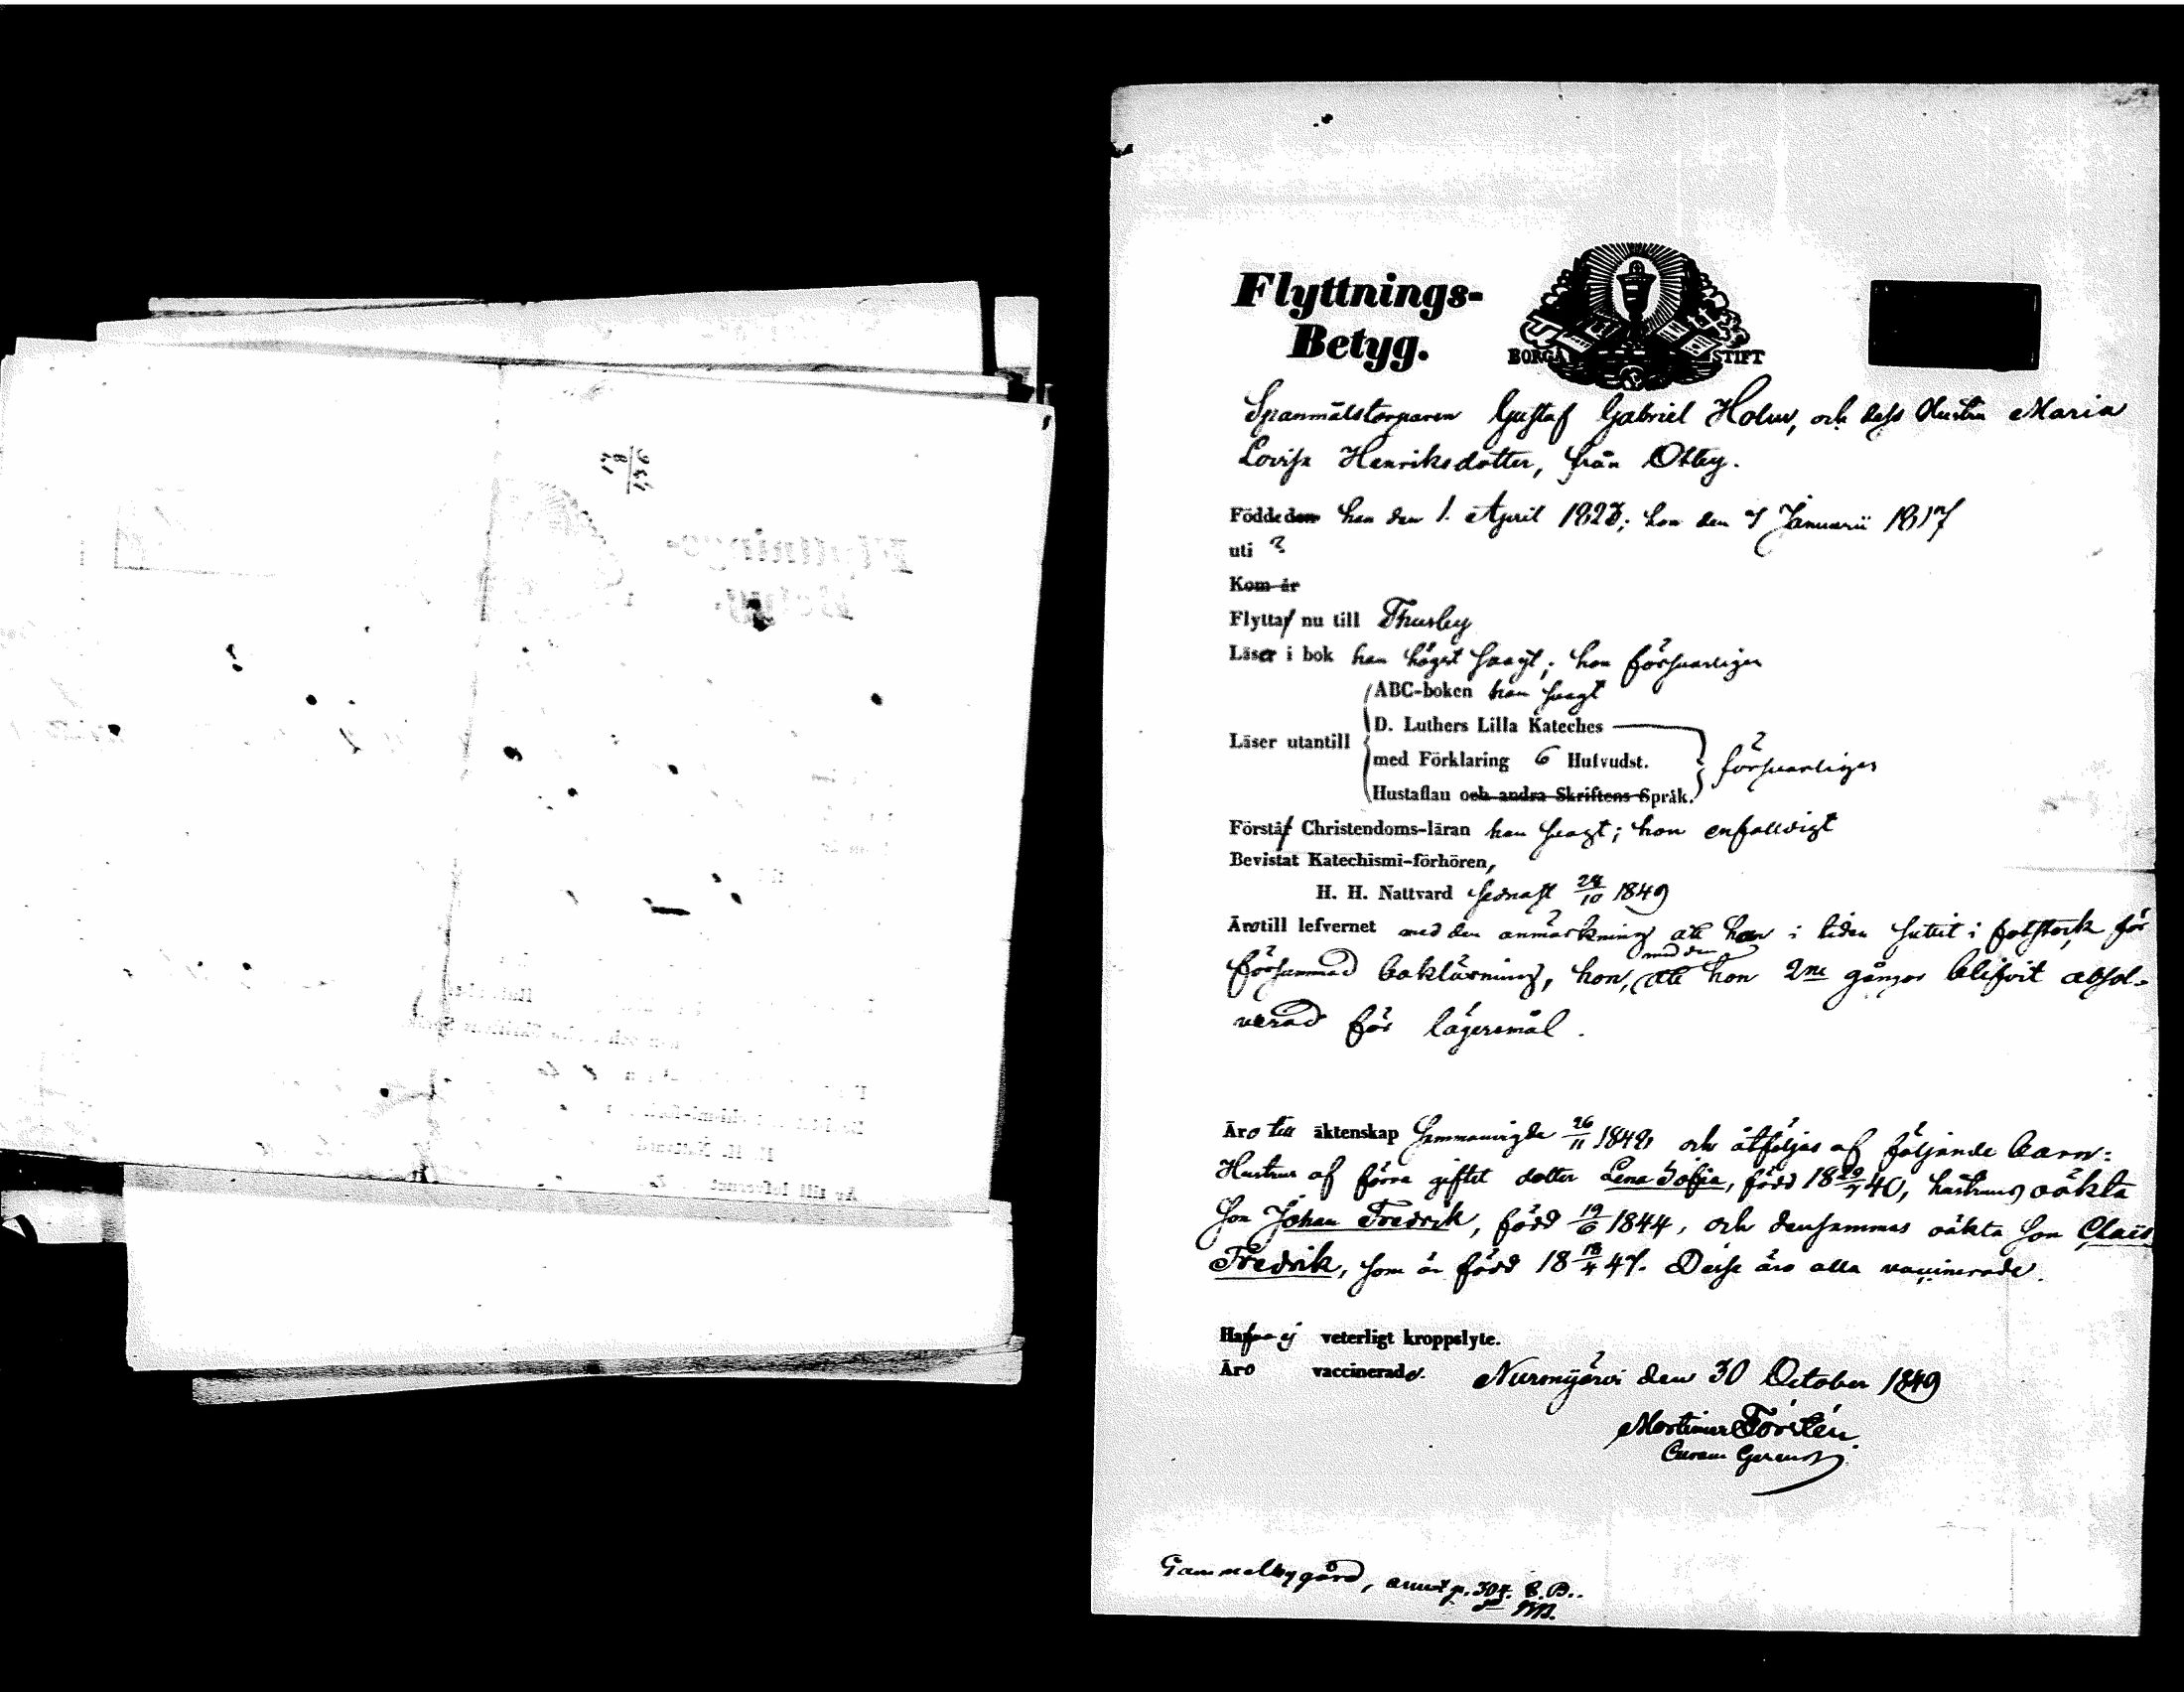 Flyttnings-
Betyg.
BORGÅ STIFT
Spanmålstorparen Gustaf Gabriel Holm, och dess Hustru Maria
Lovisa Henriksdotter, från Ottby.
Födde den han den 1. April 1823; hon den 7 Januarii 1817
uti ?
Kom år
Flytta nu till Thusby
Läser i bok han högst svagt; hon försvarligen
ABC-boken han svagt
D. Luthers Lilla Kateches
Läser utantill
med Förklaring 6 Hufvudst.
försvarligen
Hustaflan och andra Skriftens Språk.
Förstå Christendoms-läran han svagt; hon enfalldigt
Bevistat Katechismi-förhören,
H. H. Nattvard sednast 28/10 1849
Äro till lefvernet med den anmärkning att han i tiden sutit i fotstock för
försummad boklärning, hon, med den att hon 2ne gånger blifvit absol-
verad för lägersmål.
Äro till äktenskap Sammanvigde 26/11 1848 och åtföljas af följande barn:
Hustrus af förra giftet dotter Lena Sofia, född 18 /40, hustrus oäkta
Son Johan Fredrik, född 19/6 1844, och densammas oäkta Son Claës
Fredrik, som är född 18 18/4 47. Desse äro alla vaccinerade.
Hafva ej veterligt kroppslyte.
Äro vaccinerade. Nurmijärvi den 30 October 1849
Mortimer Forstén
Curam Gerens
Gammelbygård, p. 304. C. B..